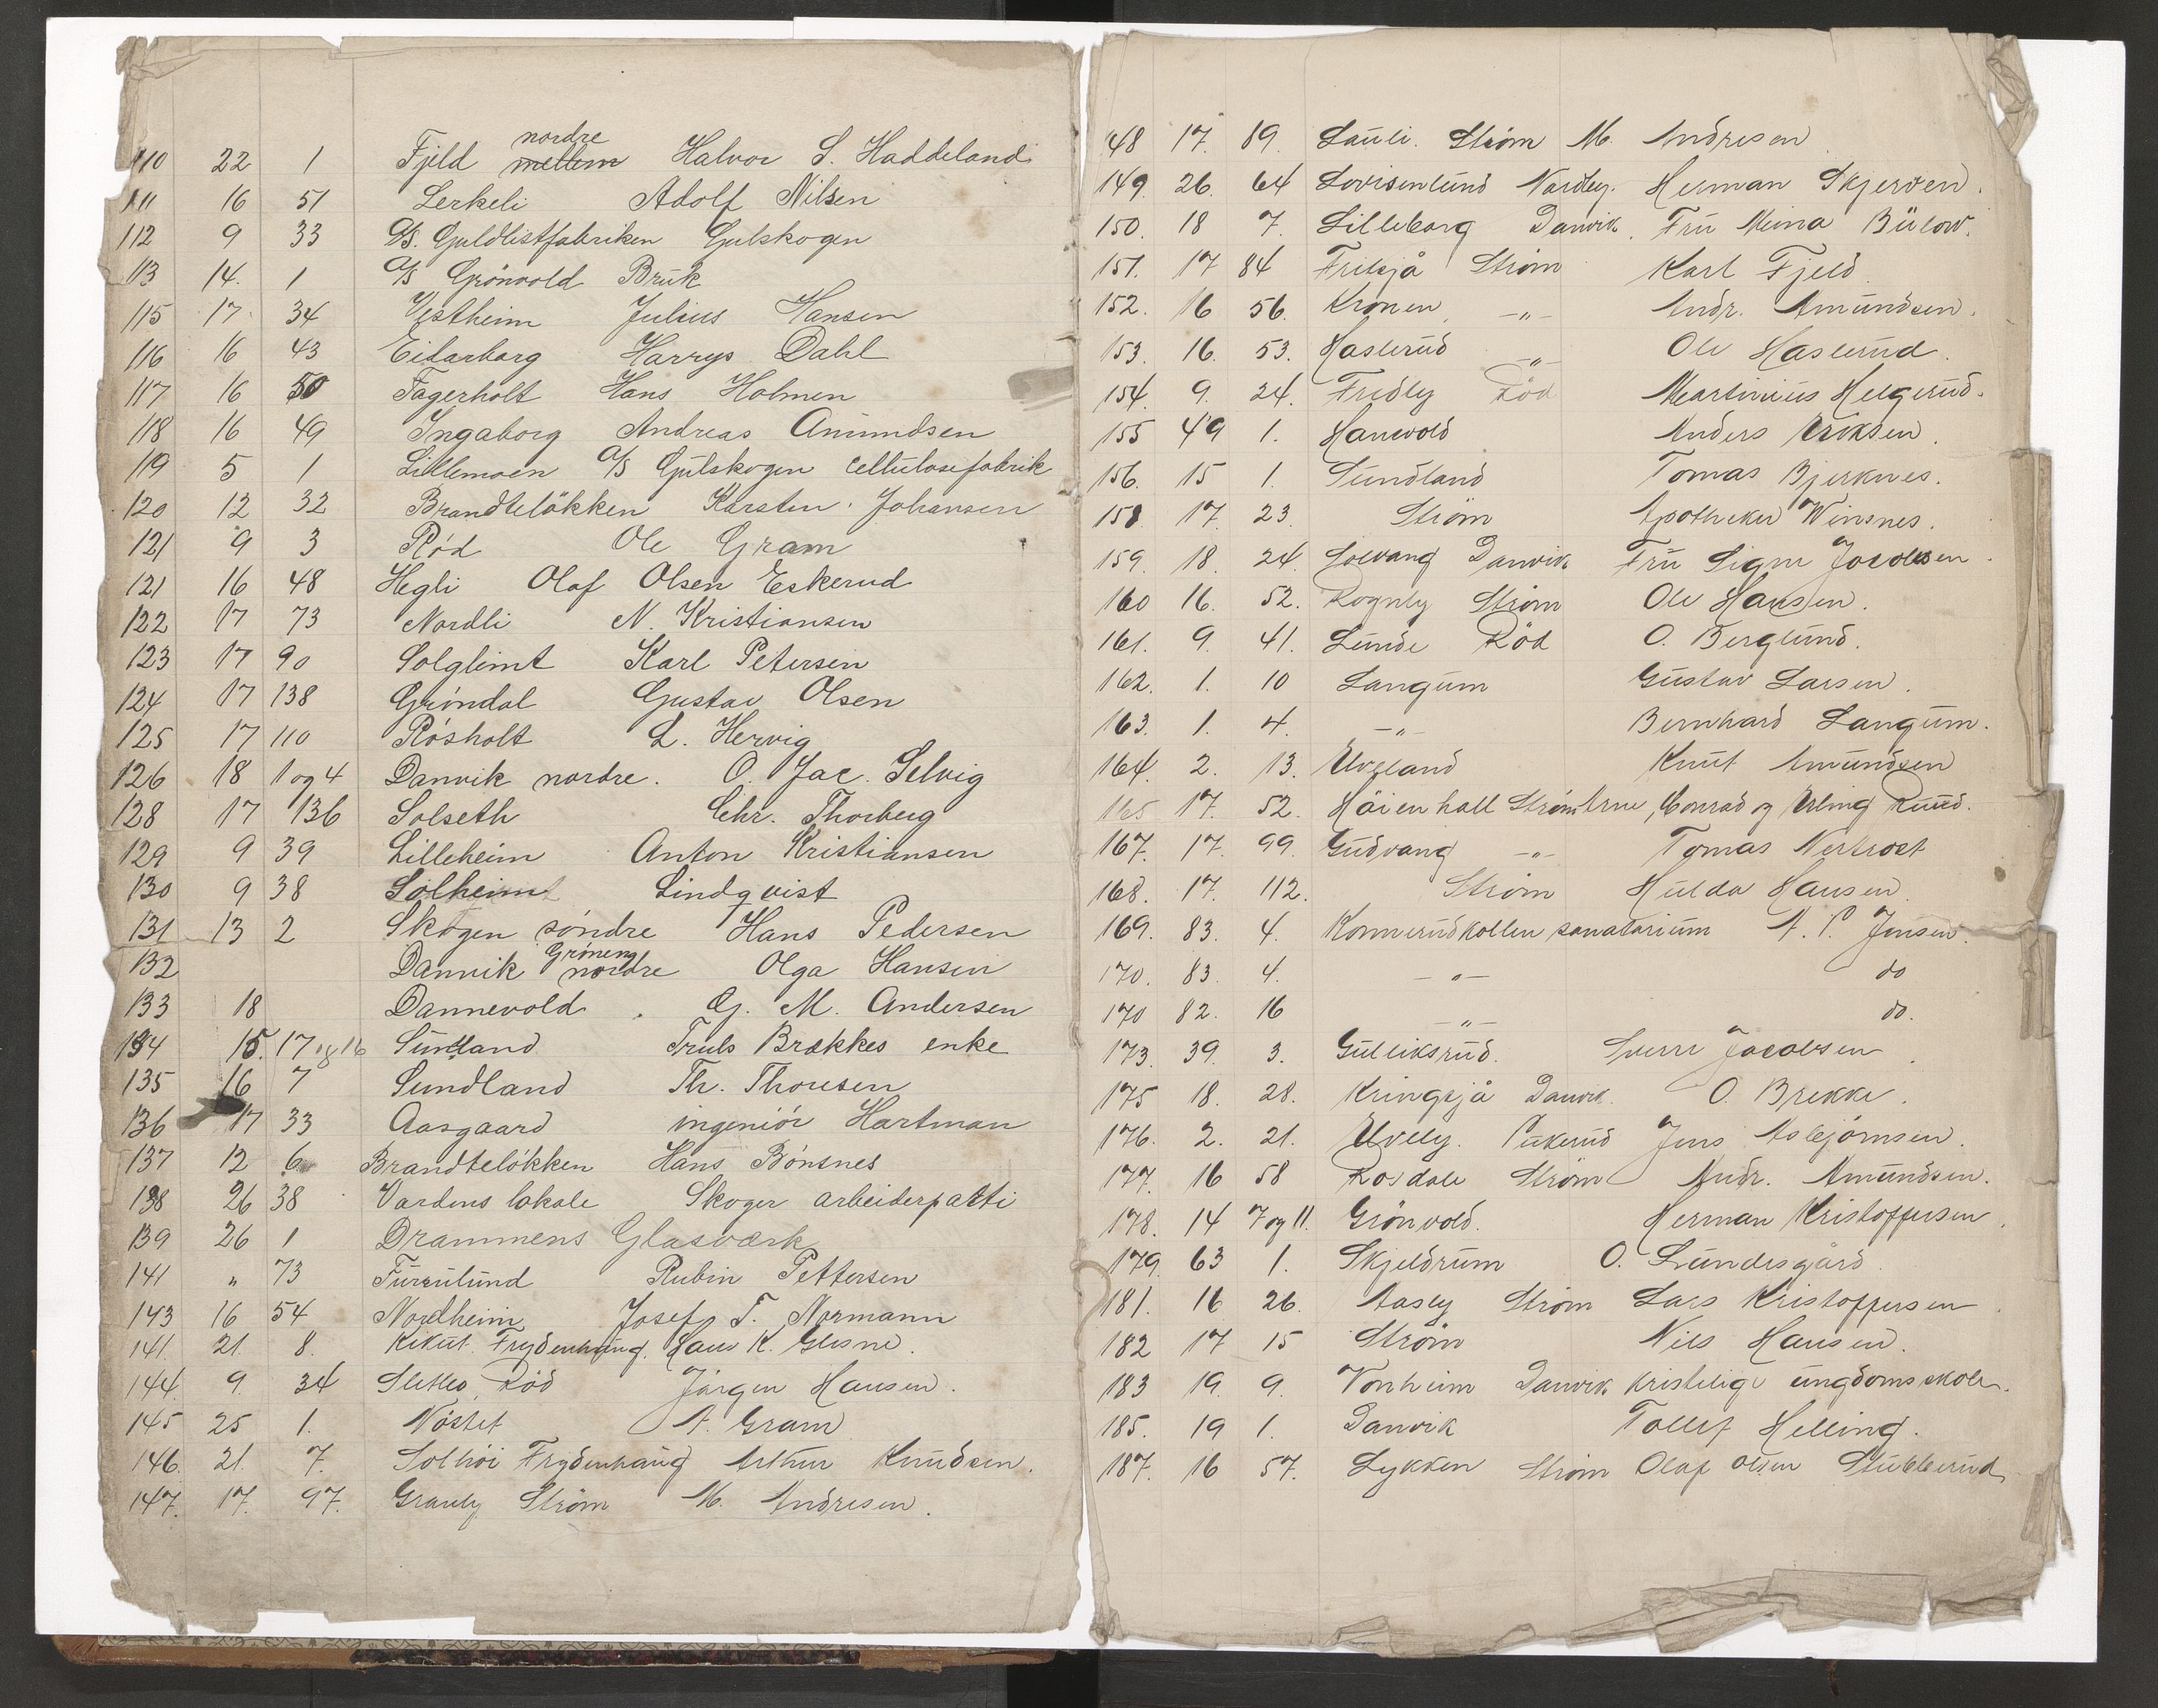 110 22 1 Fjeld mellem nordre Halvor S. Haddeland
111 16 51 Lerkeli Adolf Nilsen
112 9 33 A/S. Guldlistfabriken Gulskogen
113 14. 1 A/S Grönvold Bruk
115 17 34 Vestheim Julius Hansen
116 16 43 Eidarborg Harrys Dahl
117 16 50 Fagerholt Hans Holmen
118 16 49 Ingaborg Andreas Amundsen
119 5 1 Lillemoen A/S Gulskogen Cellulosefabrik
120 12 32 Brandtelökken Karsten Johansen
121 9 3 Röd Ole Gram
121 16 48 Hegli Olaf Olsen Eskerud
122 17 73 Nordli N. Kristiansen
123 17 90 Solglimt Karl Petersen
124 17 138 Gröndal Gustav Olsen
125 17 110 Rösholt L. Hervig
126 18 1 og 4 Danvik nordre. O. Jac. Selvig
128 17 136 Solseth Chr. Thorberg
129 9 39 Lilleheim Anton Kristiansen
130 9 38 Solheim Lindqvist
131 13 2 Skogen söndre Hans Pedersen
132 Danvik nordre Gröneng Olga Hansen
133 18 Dannevold. G. M. Andersen
134 15. 17 og 16 Sundland Truls Brækkes enke
135 16 7 Sundland Th. Thoresen
136 17 33 Aasgaard ingeniör Hartman
137 12 6 Brandtelökken Hans Bönsnes
138 26 38 Vardens lokale Skoger arbeiderparti
139 26 1 Drammens Glasværk
141 " 73 Furulund Rubin Pettersen
143 16 54 Nordheim Josef T. Normann
141. 21. 8. Kikut. Frydenhaug. Hans K. Glesne.
144. 9. 34 Sletto, Röd Jörgen Hansen.
145 25 1. Nöstet A. Gram
146. 21. 7. Solhöi Frydenhaug Arthur Knudsen.
147. 17. 97. Granly Ström M. Andresen.
148 17. 89. Lauli. Ström M. Andresen
149. 26. 64 Lovisenlund Nordby. Herman Skjerven.
150. 18 7. Lilleborg Danvik. Fru Mina Bülow.
151. 17 84 Fritsjå Ström Karl Fjeld
152. 16 56. Kronen -"- Andr. Amundsen.
153. 16. 53. Haslerud -"- Ole Haslerud.
154. 9. 24. Fredly Röd Martinius Helgerud.
155 49 1. Hanevold Anders Eriksen.
156. 15 1. Sundland Tomas Bjerknes.
158 17. 23. Ström Apotheker Winsnes.
159. 18. 24. Solvang Danvik Fru Signe Jacobsen.
160 16. 52. Rognly Ström Ole Hansen.
161. 9. 41. Lunde Röd O. Berglund.
162. 1. 10 Langum Gustav Larsen.
163. 1. 4. -"- Bernhard Langum.
164. 2. 13. Uveland Knut Amundsen
165 17. 52. Höienhall Ström Arne, Conrad og Erling Ruud.
167. 17. 99. Gudvang -"- Tomas
168. 17. 112. Ström Hulda Hansen
169. 83. 4. Konnerudkollen sanatorium A. P. Jensen.
170. 83. 4. -"- do
170 82. 16 -"- do.
173. 39. 3. Gulliksrud. Sverre Jacobsen.
175 18. 28. Kringsjå Danvik. O. Brekke.
176. 2. 21. Uvelly. Pukerud Jens Asbjörnsen.
177. 16 58 Rosdale Ström Andr. Amundsen.
178. 14 7 og 11. Grönvold. Herman Kristoffersen.
179. 63 1. Skjeldrum O. Lundesgård.
181. 16 26. Aasly Ström Lars Kristoffersen.
182 17 15 Ström Nils Hansen.
183 19. 9. Vonheim Danvik kristelige ungdomsskole.
185. 19 1. Danvik Tollef Helling.
187. 16 57. Lykken Ström Olaf Olsen Stubberud